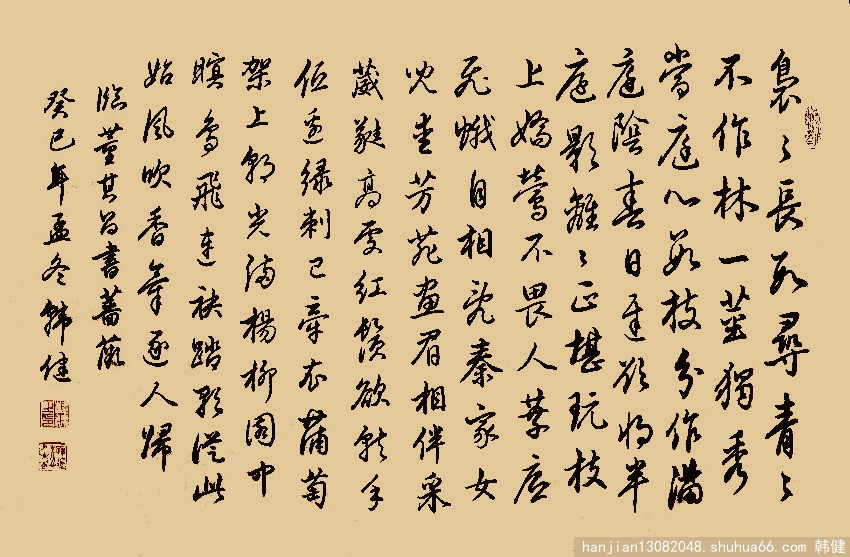 裊〻長数尋青〻
不作林一莖獨秀
當庭心数枝分作滿
庭陰春日遲欲將半
庭影離〻正堪玩枝
上嬌鶯不畏人葉底
飛蛾自相亂秦家女
兒愛芳菲畫眉相伴采
葳蕤高處紅鬚欲就手
低邊綠刺已牽衣蒲萄
架上朝光滿楊柳園中
暝鳥飛連袂踏歌從此
始風吹香氣逐人歸
臨董其昌書薔薇
癸巳年孟冬韩健
hanjian13082048.shuhua66.com 韩健